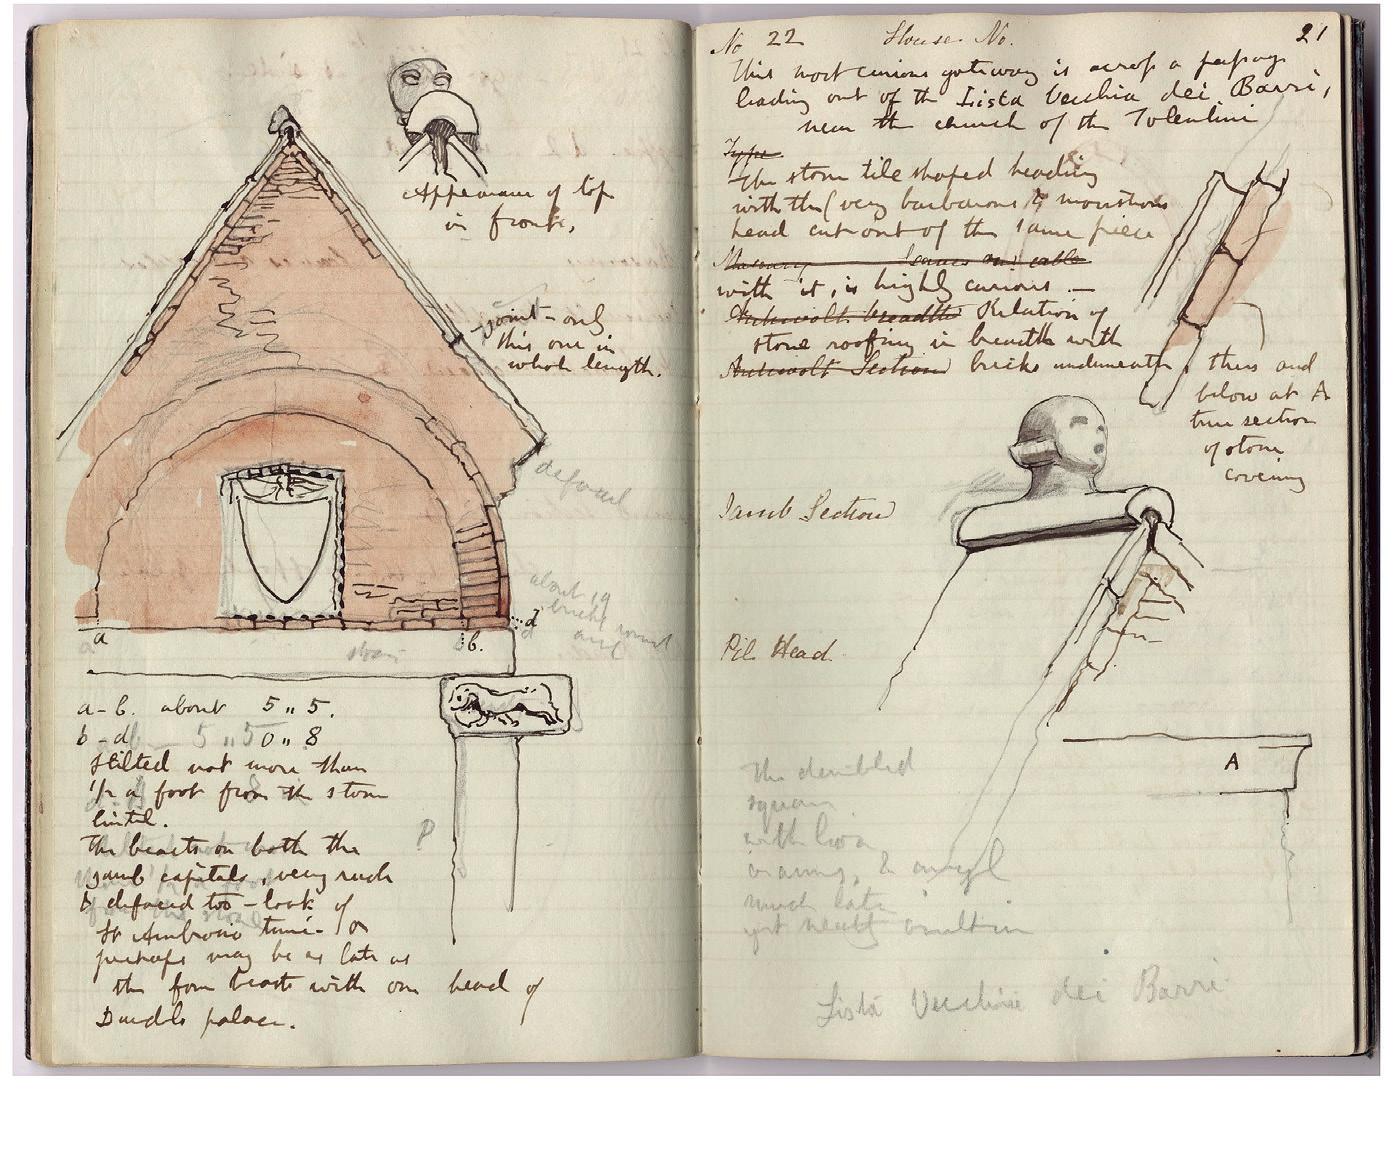 Appearance of top
in front.
joint - only
this one in
whole length.
defaced
about 19
bricks round
arch
a
b.
d
a-b. about 5 „ 5.
b-d 0 „ 8
stilted not more than
1/2 a foot from the stone
lintel.
The beasts on both the
jamb capitals, very rude
& defaced too - look of
St Ambrosio time - or
perhaps may be as late as
the four beasts with one head of
Ducal palace.
P
No 22 House No. 21
This most curious gateway is across a passage
leading out of the Lista Vecchia dei Barri,
near the church of the Tolentini
Type
The stone tile shaped heading
with the (very barbarous & monstrous
head cut out of the same piece
Masonry
with it, is highly curious. —
Archivolt breadth Relation of
stone roofing in breadth with
Archivolt Section bricks underneath thus and
below at A
true section
of stone
covering
Jamb Section
Pil Head.
A
The dentilled
square
with lion
& angel
much late
yet neatly
Lista Vecchia dei Barri